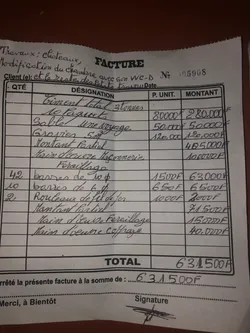 Travaux : Chateaux,
Modification de chambre avec son WC-D
FACTURE
Client (e) : et le reste de
N° 105008
Date
QTÉ DÉSIGNATION P. UNIT. MONTANT
Ciment total 3 tonnes
80000F 280.000F
Sable 50.000F 50.000F
Gravier 120.000
Montant Partiel 405000F
Main d'œuvre Maçonnerie 100000F
Ferraillage
42 barres de 10 ø 1500F 63000F
10 barres de 6 ø 650F 6500F
2 Rouleaux de fil de fer 1000F 2000F
Montant Partiel 71500F
Main d'œuvre Ferraillage 15000F
Main d'œuvre coffrage 40.000F
TOTAL 631500F
Arrêté la présente facture à la somme de : 631500F
Merci, à Bientôt
Signature